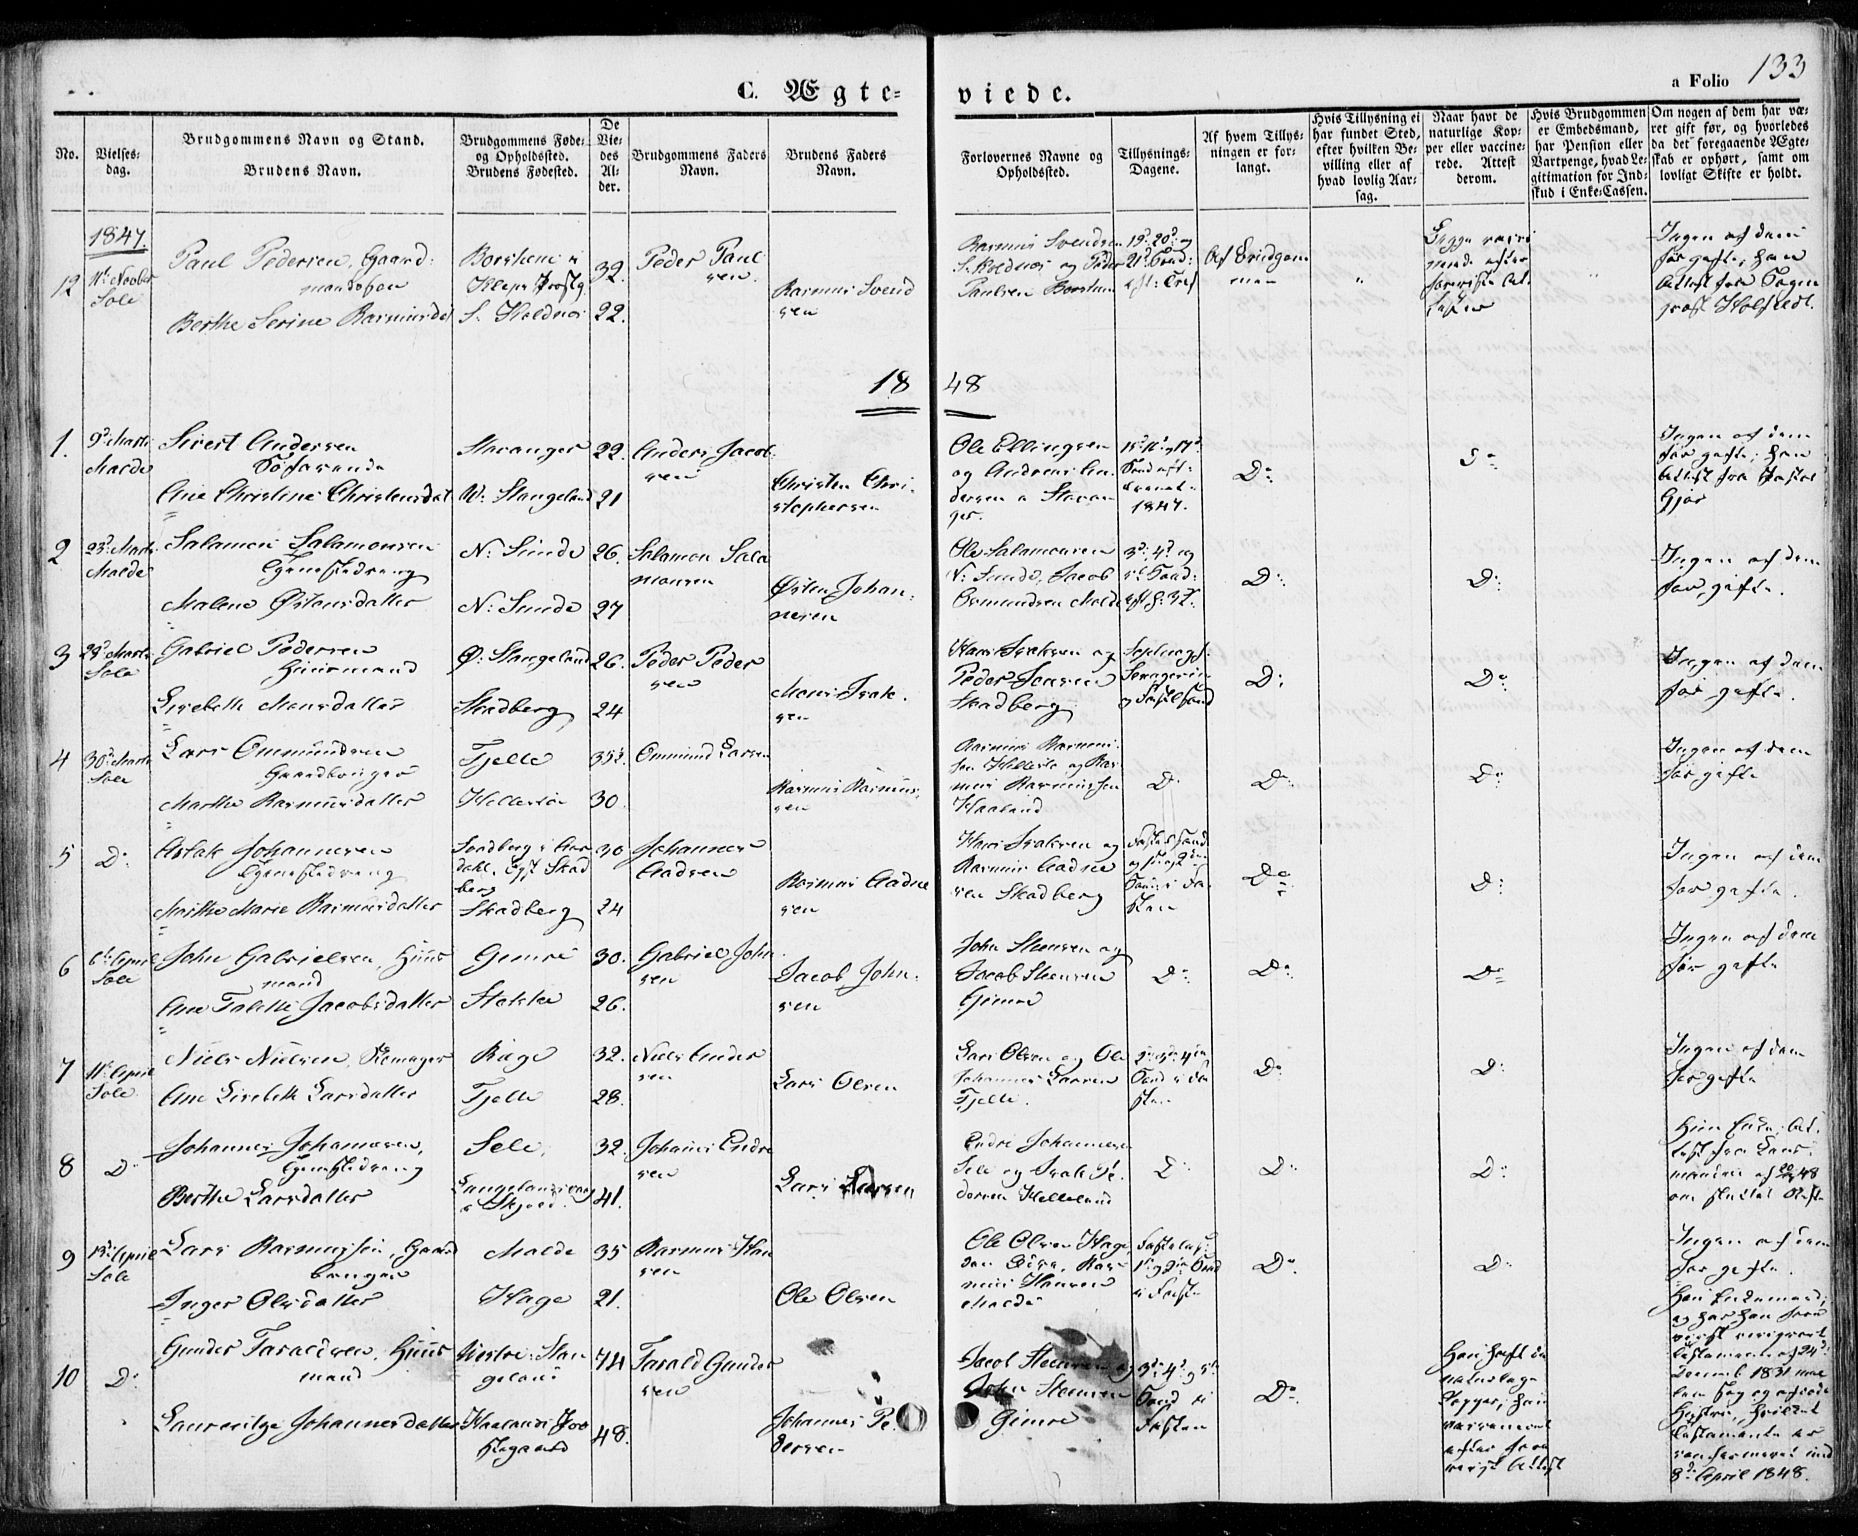 133
C. Ægte- viede.
a Folio
No.
Vielses-
dag.
Brudgommens Navn og Stand.
Brudens Navn.
Brudgommens Føde-
og Opholdssted.
Brudens Fødested.
De
Vie-
des
Al-
der.
Brudgommens Faders
Navn.
Brudens Faders
Navn.
Forlovernes Navne og
Opholdssted.
Tillysnings-
Dagene.
Af hvem Tillys-
ningen er for-
langt.
Hvis Tillysning ei
har fundet Sted,
efter hvilken Be-
villing eller af
hvad lovlig Aar-
sag.
Naar havt de
naturlige Kop-
per eller vaccine-
rede. Attest
derom.
Hvis Brudgommen
er Embedsmand,
har Pension eller
Vartpenge, hvad Le-
gitimation for Ind-
skud i Enke-Cassen.
Om nogen af dem har væ-
ret gift før, og hvorledes
da det foregaaende Ægte-
skab er ophørt, samt om
lovligt Skifte er holdt.
1847.
12
11t Novbr
Sole
Paul Pedersen, Gaard-
mandssøn
Berthe Serine Rasmusdr
Borsheim i
Kleps Prestg.
S. Koldnes
32.
22.
Peder Paul
sen
Rasmus Svend
sen
Rasmus Svendsen
S. Koldnes og Peder
Paulsen Borsheim
19d 20d og
21d Sønd:
eft: Tref
Af Brudgom
men
Begge vacci
nerede efter
foreviste At-
tester
Ingen af dem
før gifte; han
Attest fra Sogne
præst Holstedt.
18 48
1.
9d Marts
Malde
Sivert Andersen
Søfarende
Ane Christine Christensdat
Stavanger
V: Stangeland
22.
21
Anders Jacob-
sen
Christen Chri-
stophersen
Ole Ellingsen
og Andreas An-
dersen a Stavan-
ger.
15d 16d og 17d
Sønd eft:
Trenet:
1847.
Do
Do
Ingen af dem
før gifte; han
Attest fra Pastor
Gjør
2
23d Marts
Malde
Salamon Salamonsen
Gjenestedreng
Malene Østensdatter
N: Sunde
N: Sunde
26.
27
Salamon Sala
monsen
Østen Johan-
nesen
Ole Salamonsen
N: Sunde, Jacob
Osmundsen Malde
3d: 4d og
5t Sønd:
eft h: 3K.
Do
Do
Ingen af dem
før gifte.
3
29d Marts
Sole
Gabriel Pedersen
Huusmand
Lisebeth Monsdatter
Ø: Stangeland
Skadberg
26.
24
Peder Peder
sen
Mons Isak-
sen
Hans Isaksen og
Peder Jensen
Skadberg
Septuags:
Sexagesim
og Fastel sønd
Do
Do
Ingen af dem
før gifte.
4
30d Marts
Sole
Lars Ommundsen
Gaardbruger
Marthe Rasmusdatter
Tjelle
Hellestøe
35½
30.
Ommund Larsen
Rasmus Rasmus-
sen
Rasmus Rasmus-
sen Hellestø og Ras-
mus Rasmussen
Haaland
Do
Do
Do
Ingen af dem
før gifte
5
Do
Aslak Johannesen
Gjenestedreng
Marthe Marie Rasmusdatter
Skadberg
berg
Skadberg
30
24
Johannes
Aadsen
Rasmus Aadne
sen
Hans Isaksen og
Rasmus Aadne
sen Skadberg
Fastel sønd
og 1ste og 2den
Sønd i Fa-
sten
Do
Do
Ingen af dem
før gifte.
6
6te April
Sole
John Gabrielsen, Huus
mand
Ane Talette Jacobsdatter
Gimre
Stokke
30.
26.
Gabriel John
sen
Jacob John-
sen
John Steensen og
Jacob Steensen
Gimre
Do
Do
Do
Ingen af dem
før gifte
7
11te April
Sole
Niels Nielsen, Skomager
Ane Lisebeth Larsdatter
Ræge
Tjelle
32.
28.
Niels Ander
sen
Lars Olsen
Lars Olsen og Ole
Johannes Larsen
Tjelle.
2d 3d 4de
Sønd i Fa
sten
Do
Do
Ingen af dem
før gifte
8
Do
Johannes Johannesen,
Gjenestedreng
Berthe Larsdatter
Sele,
i Skjold.
32.
41.
Johannes Endre
sen
Lars Larsen
Endre Johannesen
Sele og Isak Pe-
dersen Helleland
Do
Do
Do
Hun Enke; At-
test fra Lens-
manden af 48
om sluttet Skifte
9
13de April
Sole
Lars Rasmussen, Gaard
bruger
Inger Olsdatter
Malde
Hage
35
21.
Rasmus Han
sen
Ole Olsen
Ole Olsen Hage,
Ras-
mus Hansen
Malde
Fastelaf:
1st og 2den Sønd
i Fasten
Do
Do
Ingen af dem
før gifte.
10
Do
Gunder Taraldsen, Huus
mand
Laurentze Johannesdatter
Vestre Stan
geland
Haalands Præ
stegaard
74
48.
Tarald Gunder
sen
Johannes Pe-
dersen
Jacob Steensen og
John Steensen
Gimre
3d: 4d og 5te
Sønd i
Fasten
Do
Han havt de
naturlige
Kopper, hun
vaccineret
efter fore
viist Attest
Han Enkemand,
og har han fore
viist
Testamente af 24d
Decemb 1831 mel
lem sig og afdøde
Hustru, hvilket
Testamente er
confirmeret und
8d April 1848.